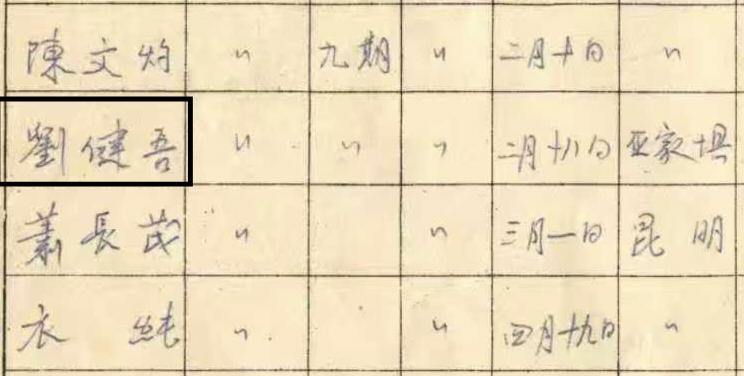 陳文灼 〃 九期 〃 二月十日 〃
劉健吾 〃 〃 〃 二月十八日 亚家埧
蕭長茂 〃 〃 三月一日 昆明
衣純 〃 〃 四月十九日 〃